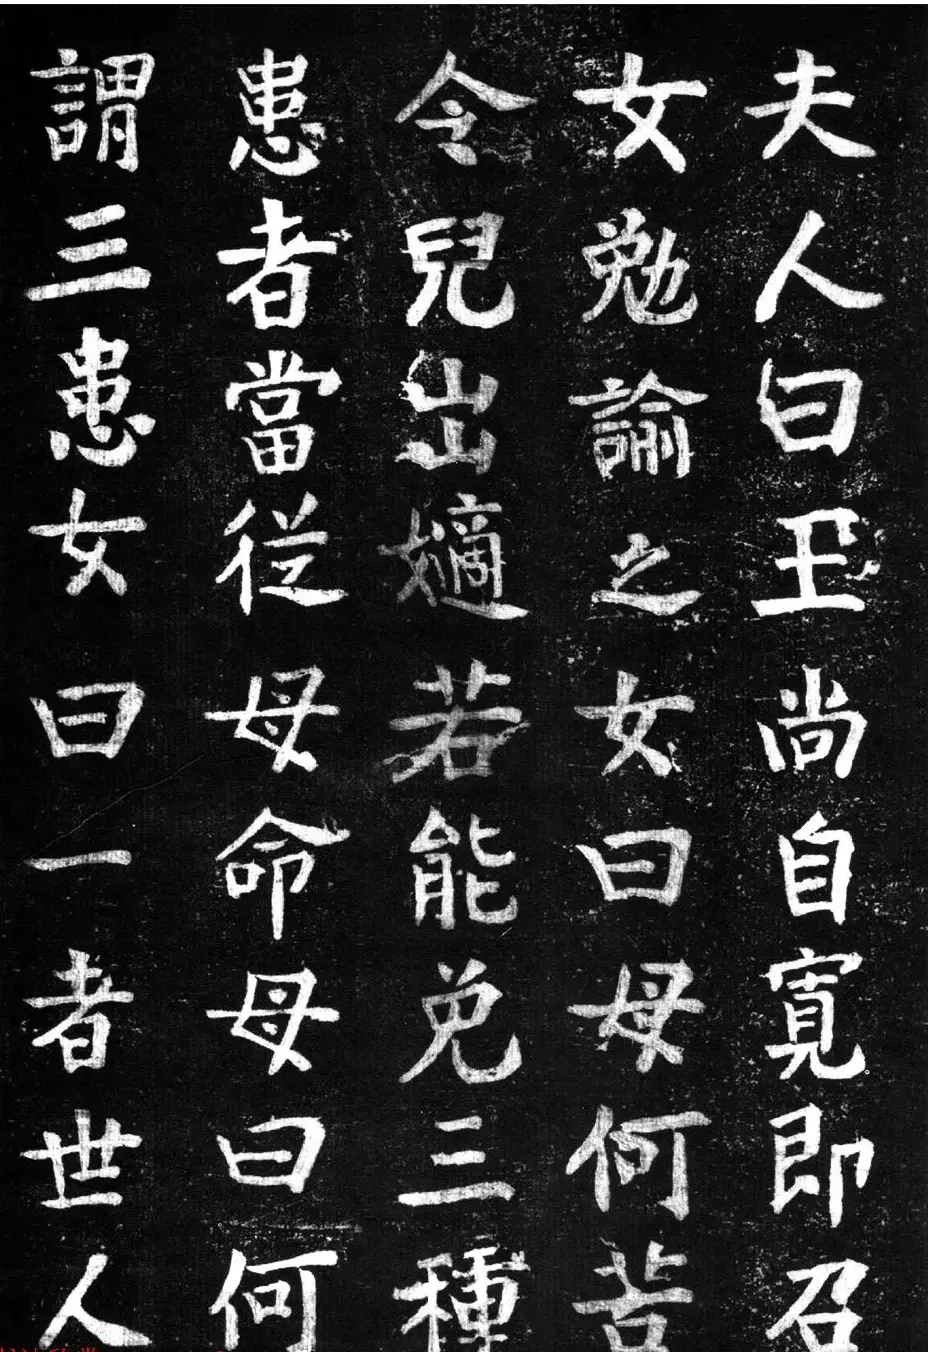 夫人曰王尚自寬即召
女勉諭之女曰母何苦
令兒出嫡若能免三種
患者當從母命母曰何
謂三患女曰一者世人